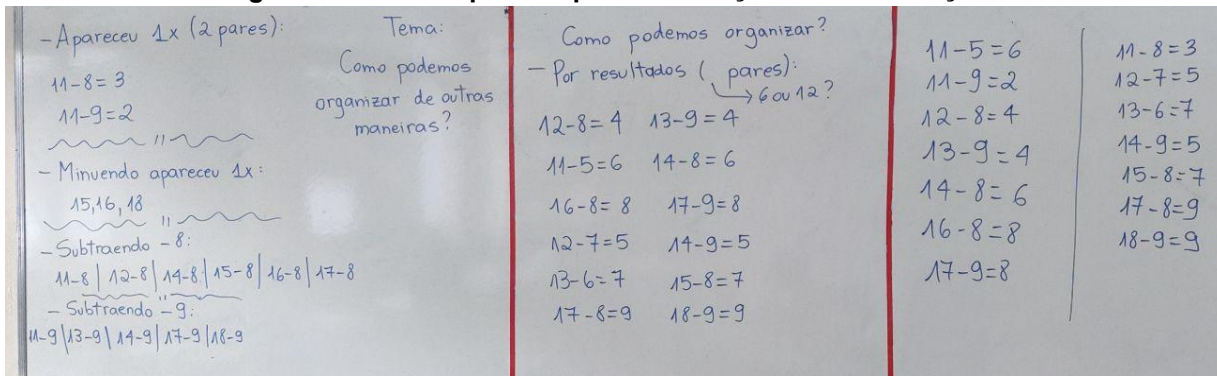 - Apareceu 1x (2 pares):
11-8=3
11-9=2
"
- Minuendo apareceu 1x:
15,16,18
"
- Subtraendo -8:
11-8 | 12-8 | 14-8 | 15-8 | 16-8 | 17-8
"
- Subtraendo -9:
11-9 | 13-9 | 14-9 | 17-9 | 18-9
Tema:
Como podemos
organizar de outras
maneiras?
Como podemos organizar?
- Por resultados ( pares):
→ 6 ou 12?
12-8=4 13-9=4
11-5=6 14-8=6
16-8=8 17-9=8
12-7=5 14-9=5
13-6=7 15-8=7
17-8=9 18-9=9
11-5=6
11-9=2
12-8=4
13-9=4
14-8=6
16-8=8
17-9=8
11-8=3
12-7=5
13-6=7
14-9=5
15-8=7
17-8=9
18-9=9